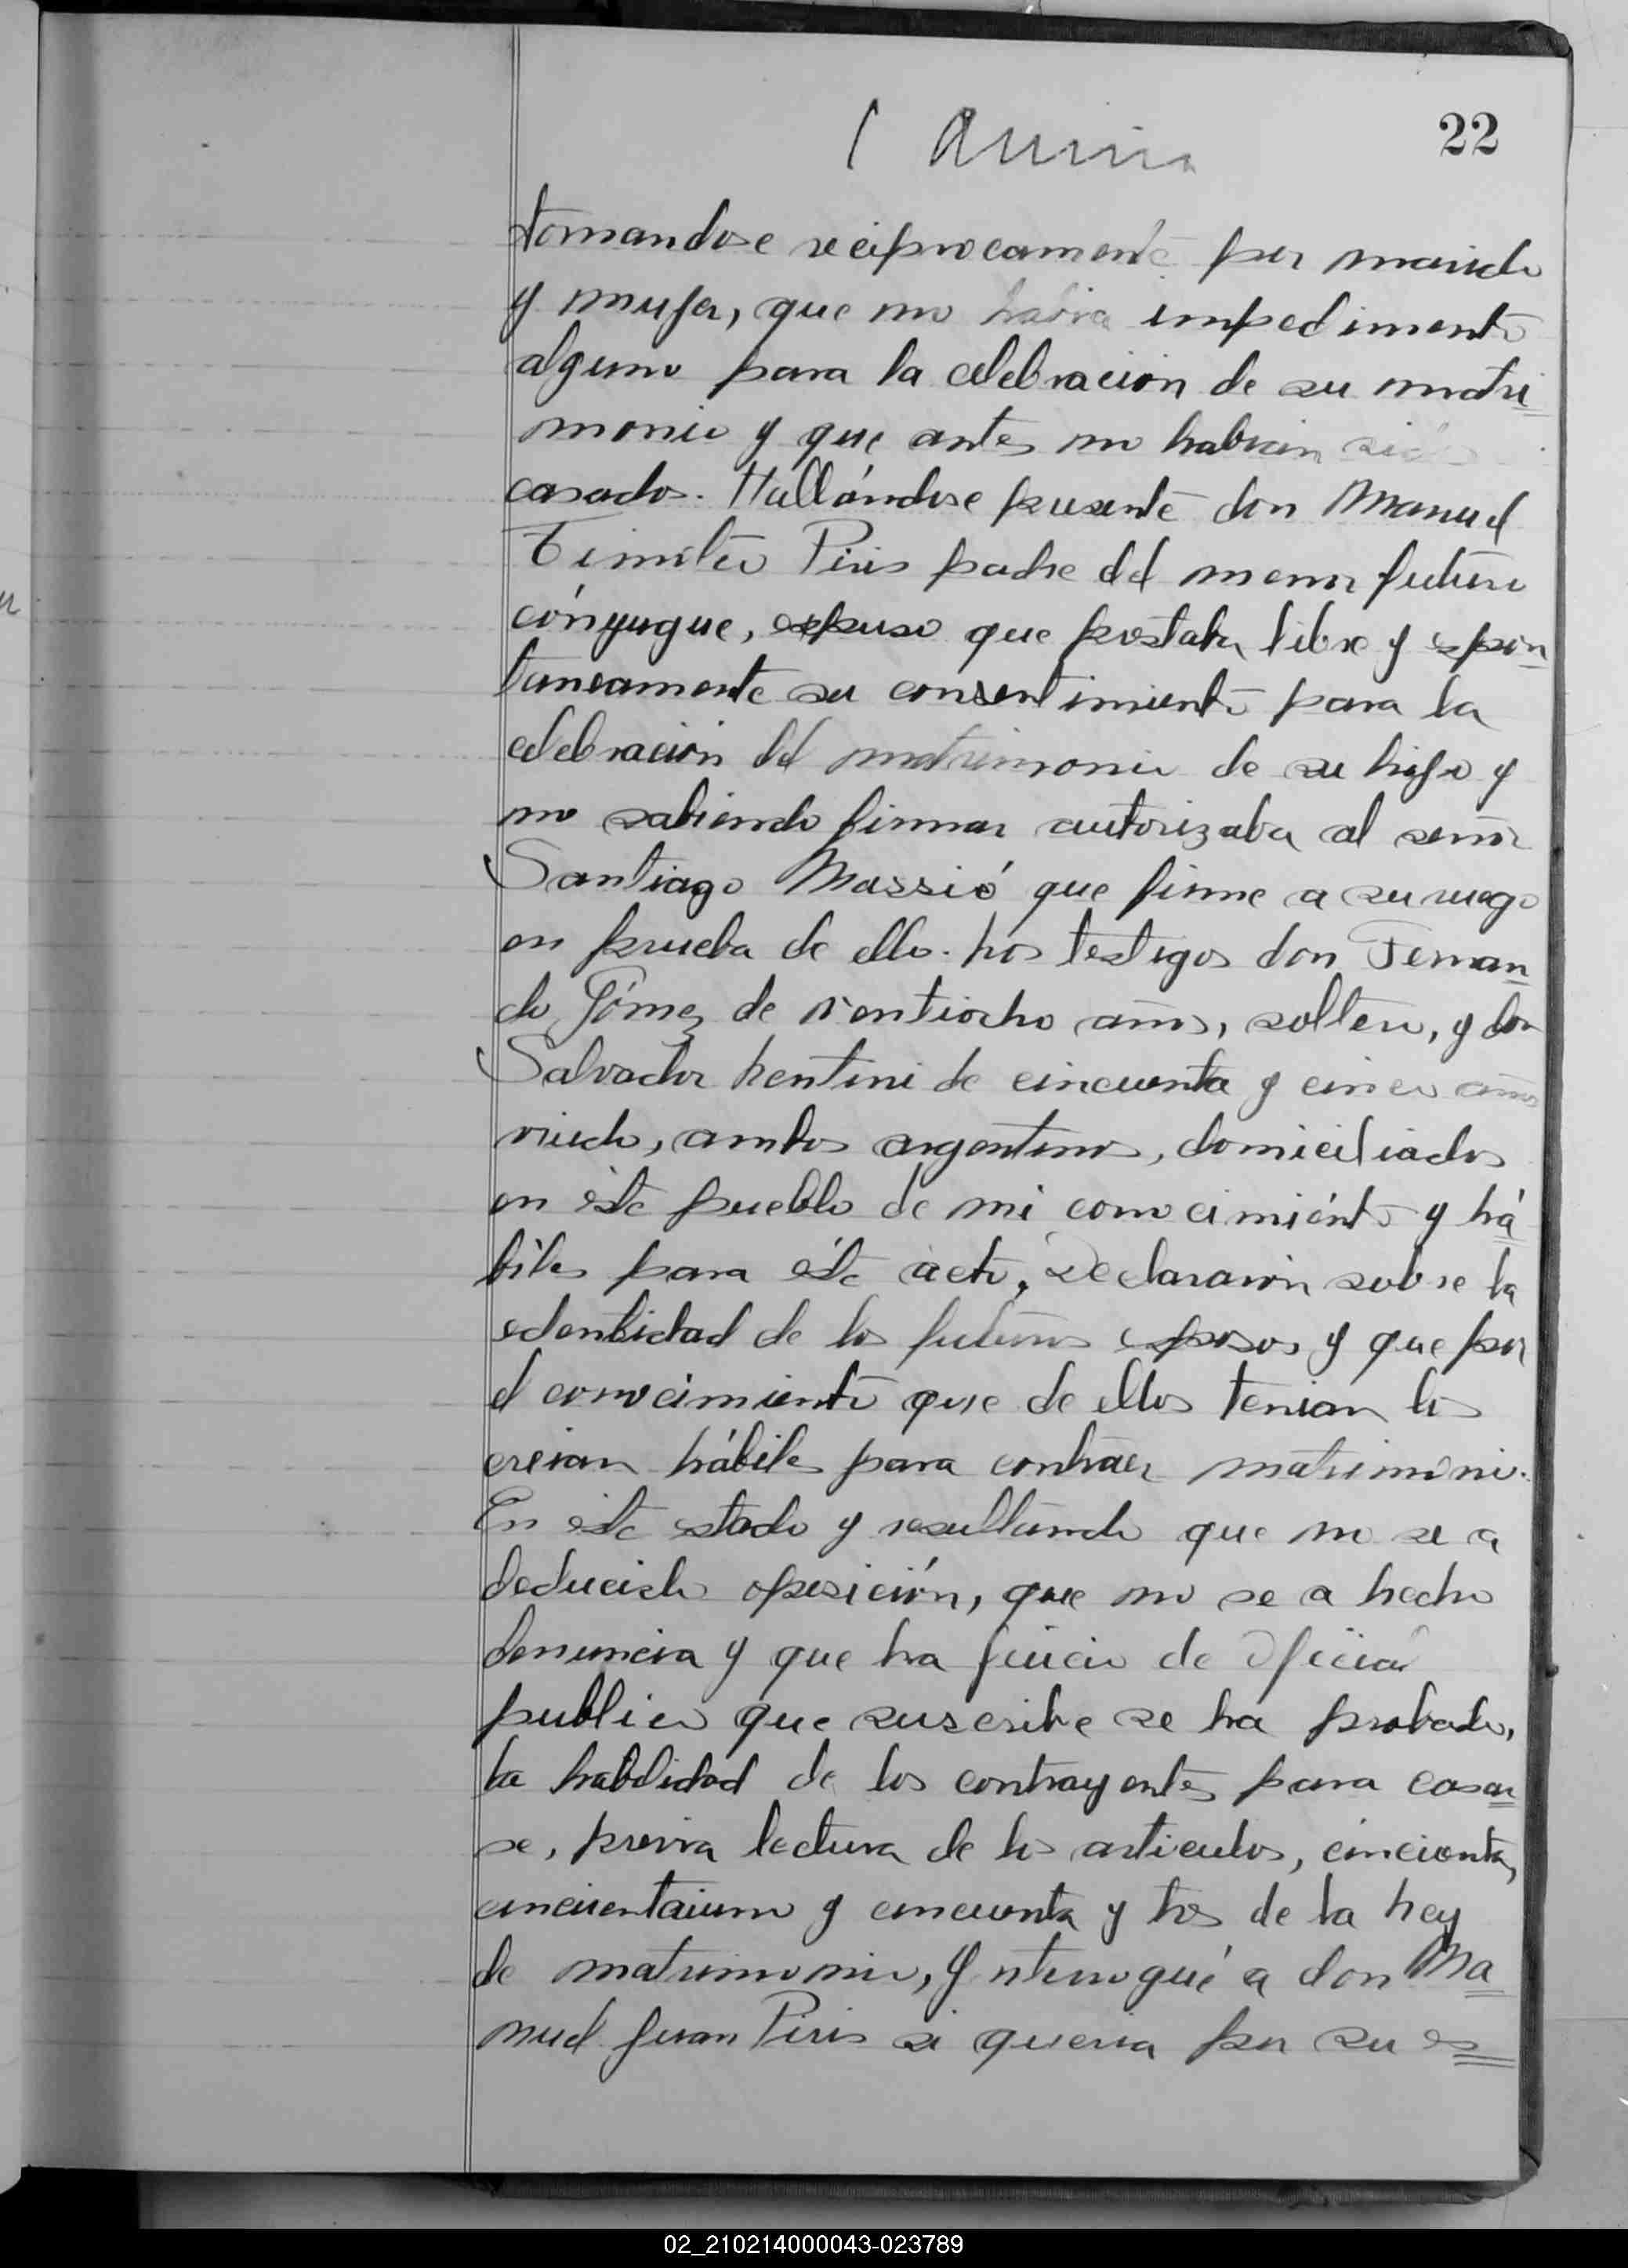 22
tomandose reciprocamente por marido
y mujer, que no habia impedimento
alguno para la celebracion de su matri
monio y que antes no habian sido
casados. Hallándose presente don Manuel
Timoteo Piris padre del menor futuro
cónyugue, expuso que prestaba libre y espon
taneamente su consentimiento para la
celebración del matrimonio de su hijo y
no sabiendo firmar autorizaba al señor
Santiago Massió que firme a su ruego
en prueba de ello. Los testigos don Fernan
do Gómez de ventiocho años, soltero, y don
Salvador Lentini de cincuenta y cinco años
viudo, ambos argentinos, domiciliados
en éste pueblo de mi conocimiénto y há
biles para éste acto, Declararón sobre la
edentidad de los futuros esposos y que por
el conocimiento que de ellos tenian los
creian hábiles para contraer matrimonio.
En éste estado y resultando que no se a
deducido oposición, que no se a hecho
denuncia y que ha juicio de Oficial
publico que suscribe se ha probado,
la habilidad de los contrayentes para casar
se, previa lectura de los articulos, cincuenta,
cincuentaiuno y cincuenta y tres de la Ley
de matrimonio, Ynterrogué a don Ma
nuel Juan Piris si queria por su es
02_210214000043-023789